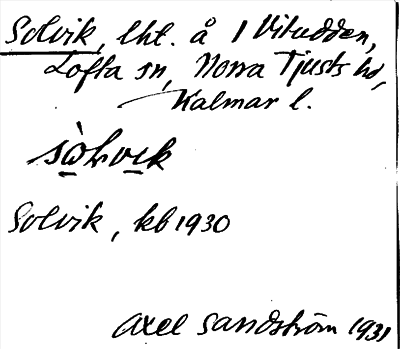 Solvik, lht. å 1 Vitudden,
Lofta sn, Norra Tjusts hd,
Kalmar l.
sὼlvιk
Solvik, kb 1930
Axel Sandström 1931